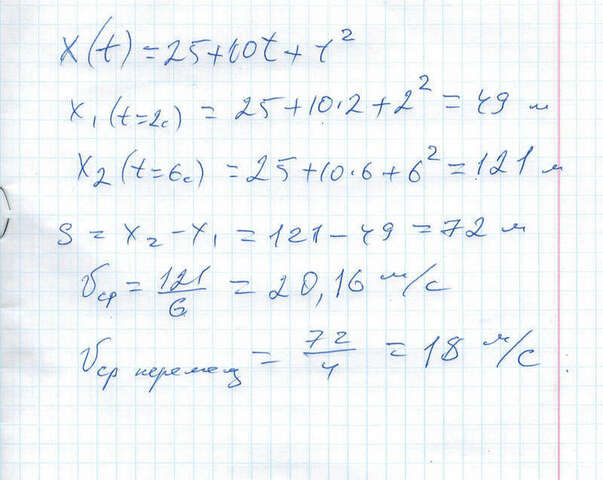 x(t) = 25 + 10t + t²
x₁(t=2с) = 25 + 10·2 + 2² = 49 м
x₂(t=6с) = 25 + 10·6 + 6² = 121 м
S = x₂ - x₁ = 121 - 49 = 72 м
υср = 121/6 = 20,16 м/с
υср перемещ = 72/4 = 18 м/с